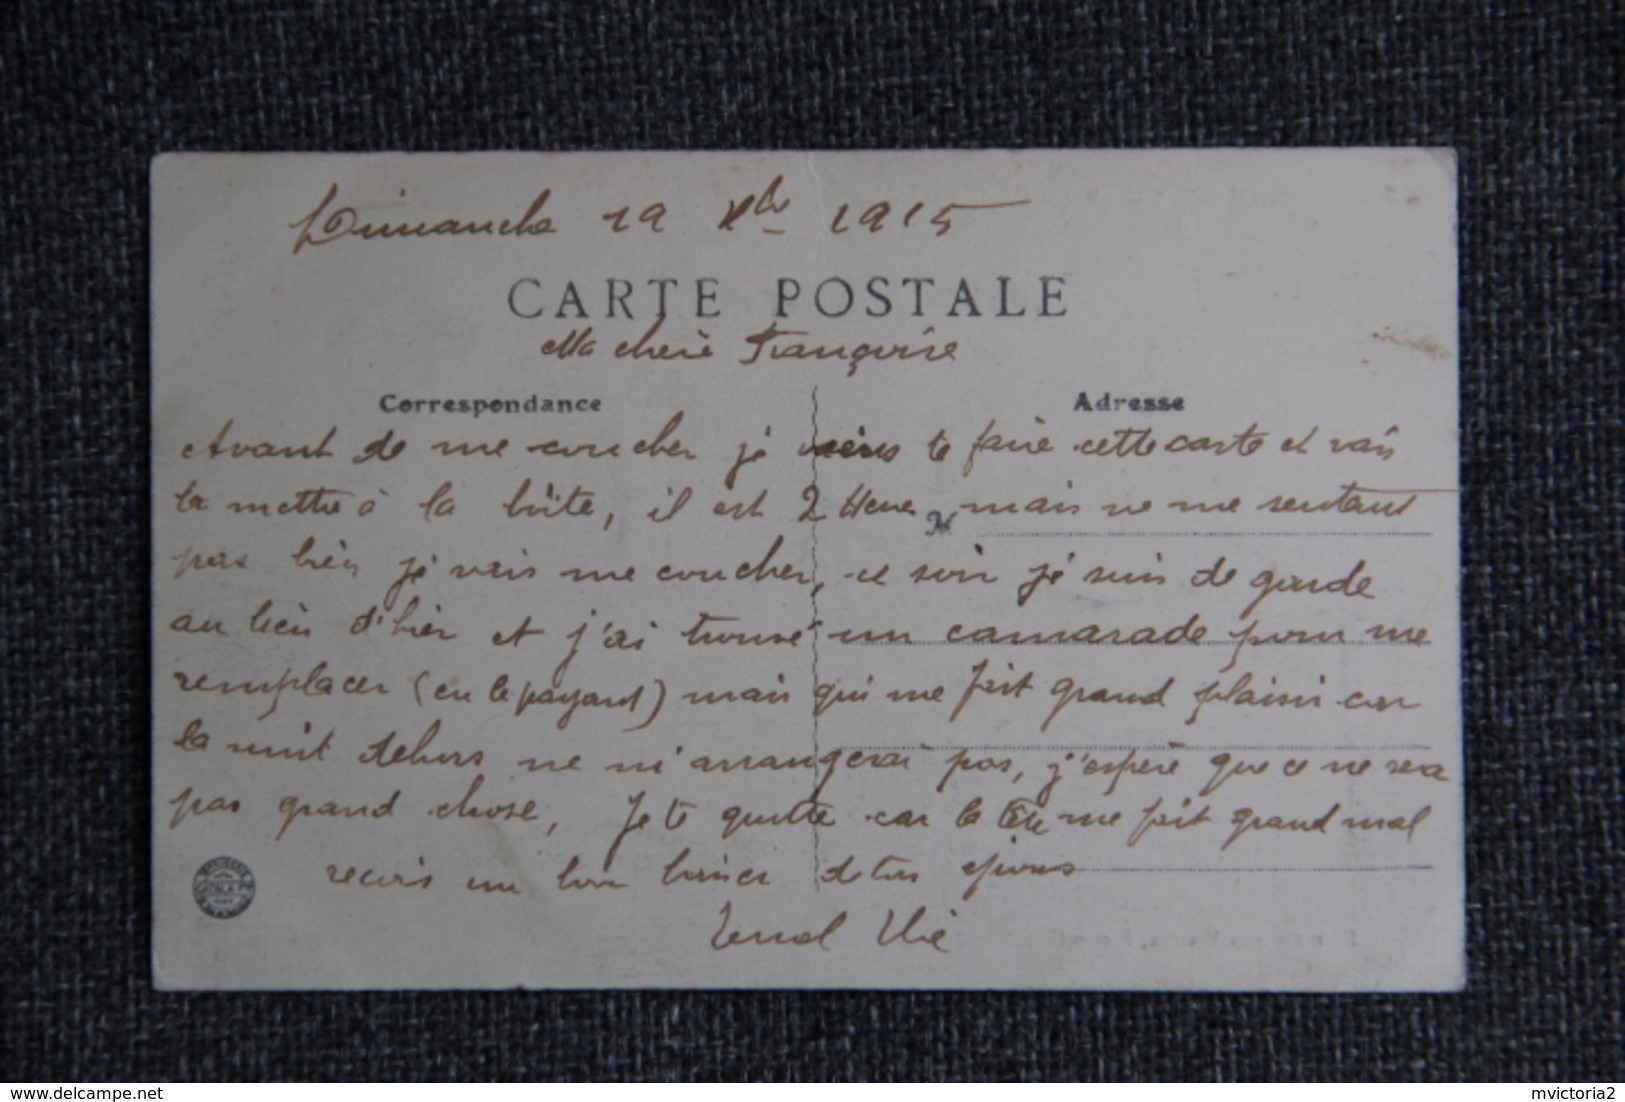 Dimanche 19 Xbre 1915
CARTE POSTALE
Ma chère Françoise
Correspondance
Adresse
Avant de me coucher je viens te faire cette carte et vais
la mettre à la boîte, il est 2 Heures mais ne me sentant
pas bien je vais me coucher, ce soir je suis de garde
au lieu d'hier et j'ai trouvé un camarade pour me
remplacer (en le payant) mais qui me fait grand plaisir car
la nuit dehors ne m'arrangerai pas, j'espère que ce ne sera
pas grand chose, Je te quitte car la tête me fait grand mal
reçois un bon baiser de ton époux
delcampe.net
mvictoria2